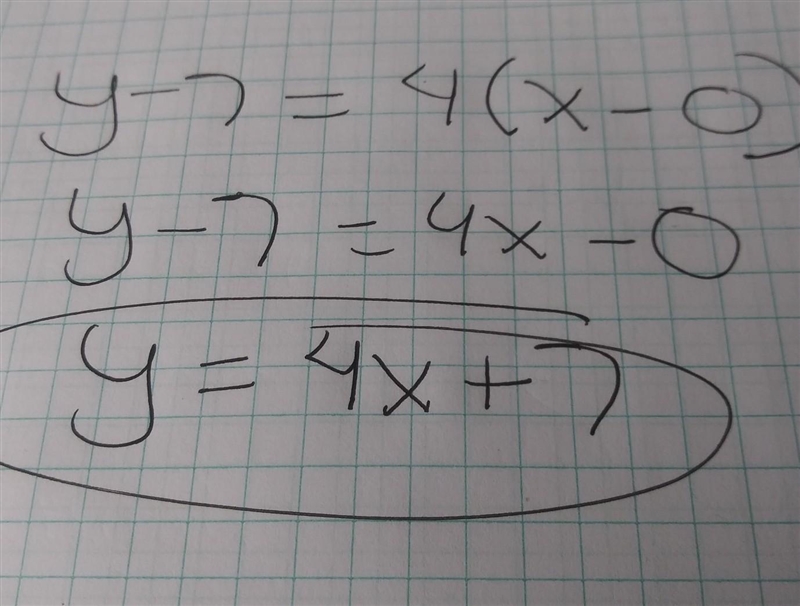 y-7=4(x-0)
y-7=4x-0
y=4x+7